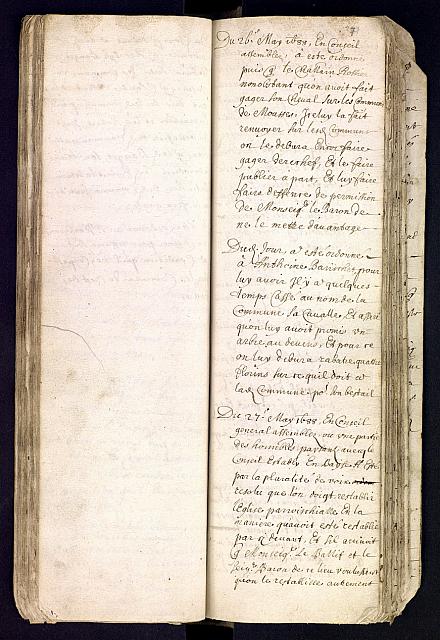 7
Du 26.e May 1688. En Conseil
assemblez, a esté ordonné
puis q le Chastlain
nonobstant quon avoit fait
gager son Cheval sur les Communs
de Mousses, Iceluy la fait
renvoyer sur lesd. Communs
on le debvra Encor faire
gager derechef, Et le faire
publier a part, Et luy faire
faire deffence de permission
de Monseig.r le Baron de
ne le mettre davantage
Dud. Jour, a esté ordonné
à Anthoine pour
luy avoir Il y a quelques
temps Cassé au nom de la
Commune sa Cavalle, Et
quon luy avoit promis un
arbre au devens, Et pour ce
on luy debvra rabatre quattre
florins sur ce quil doit a
lad. Commune po.r son bestail
Du 27.e May 1688. En Conseil
general assemblez, ou une partie
des hommes parroiss avec le
Conseil Estably En a Esté
par la pluralité de voix
resolu que lon doigt restablir
lEglise parroischialle En la
maniere quavoit esté restablie
par cy devant, Et sil arrivoit
q Monseig.r Le Ballif et le
Seig.r Baron de ce lieu voulussent
quon le restablisse autrement